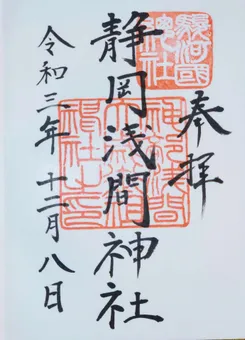 奉拝
駿河國
総社
静岡浅間神社
令和三年十二月八日